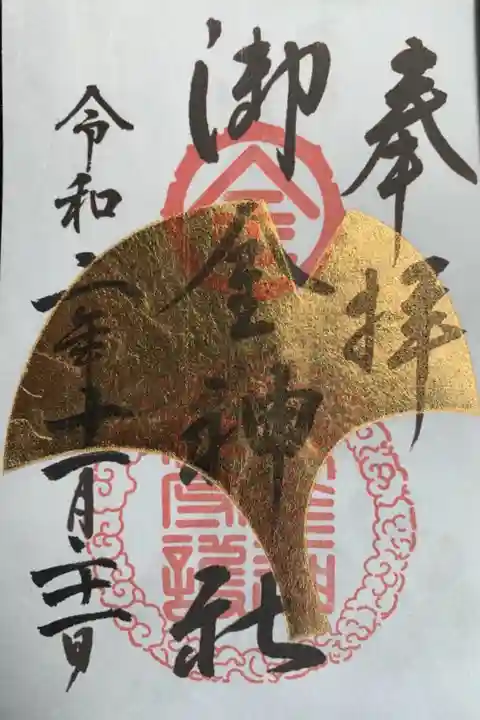 奉拝
御金神社
令和六年十一月二十一日